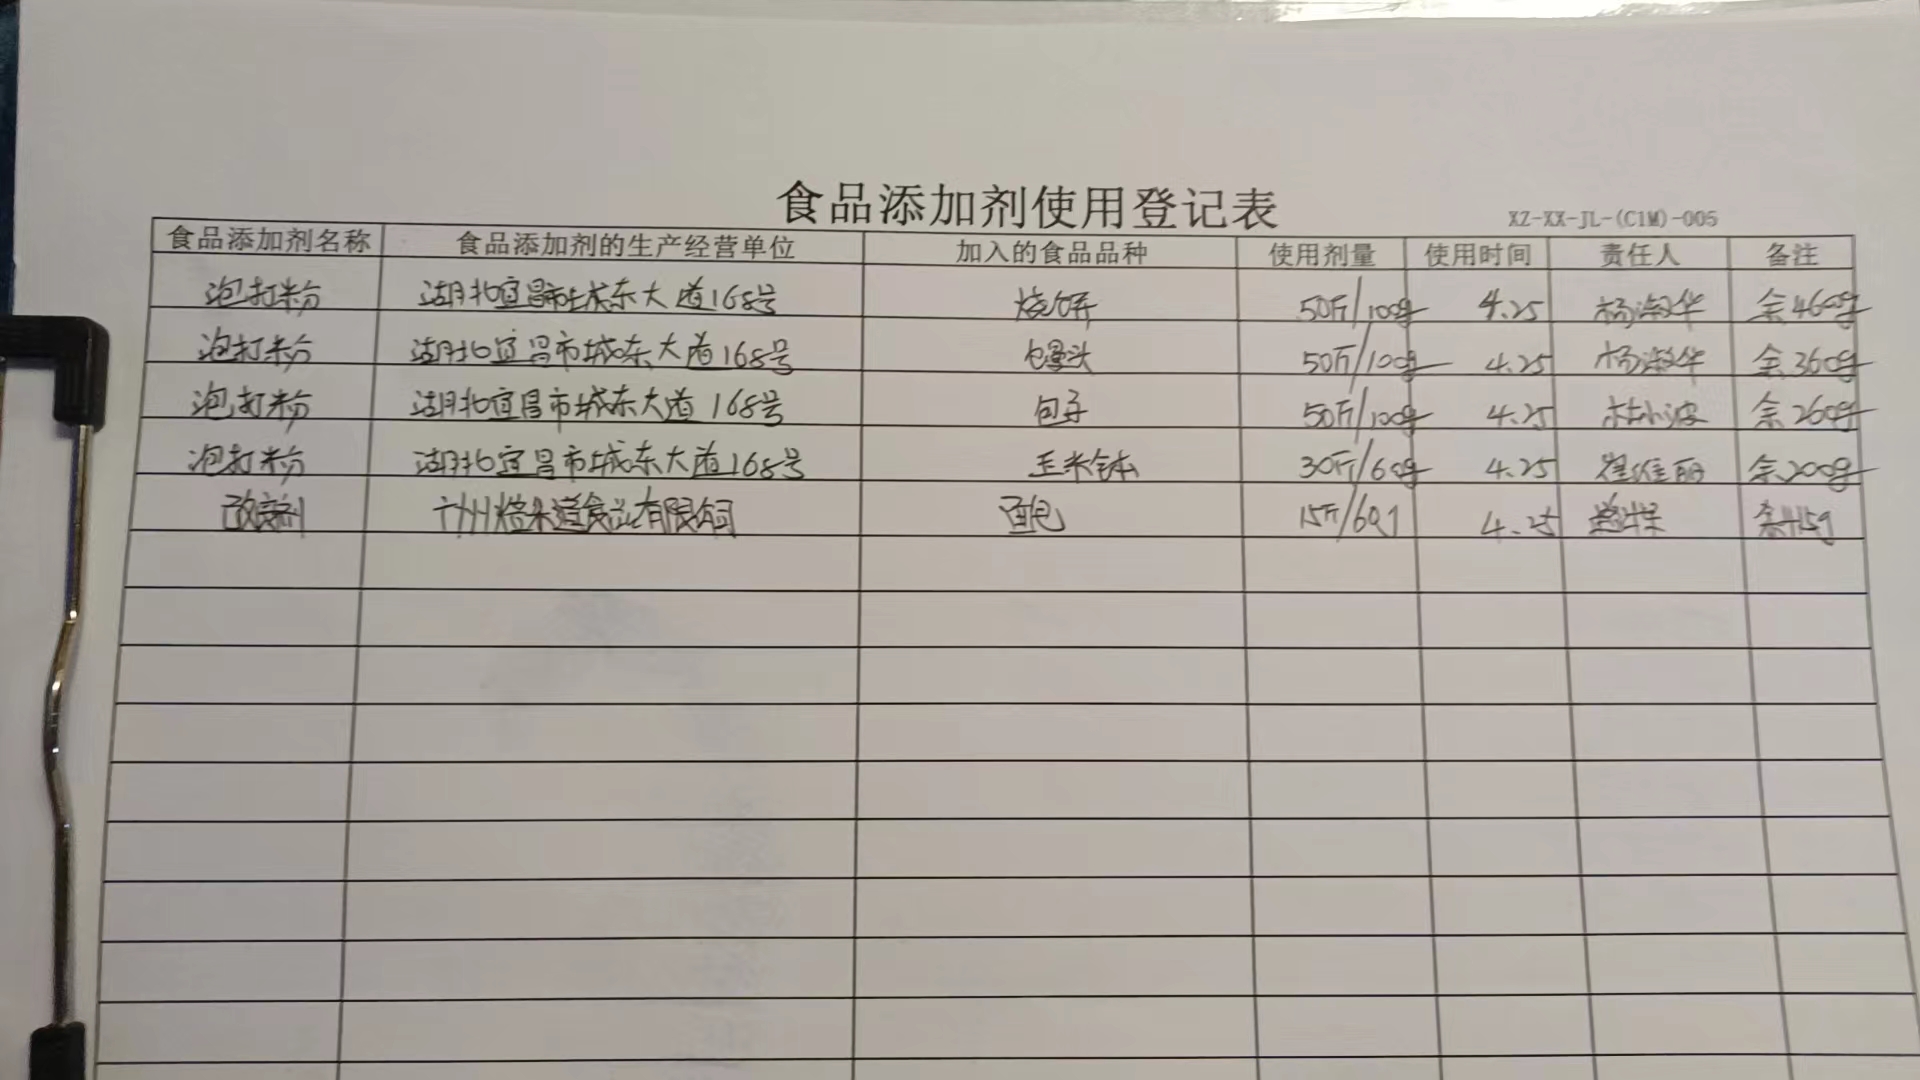 食品添加剂使用登记表
XZ-XX-JL-(C1M)-005
食品添加剂名称 食品添加剂的生产经营单位 加入的食品品种 使用剂量 使用时间 责任人 备注
泡打粉 湖北宜昌市城东大道168号 烧饼 50斤/100g 4.25 杨淑华 余460g
泡打粉 湖北宜昌市城东大道168号 馒头 50斤/100g 4.25 杨淑华 余360g
泡打粉 湖北宜昌市城东大道168号 包子 50斤/100g 4.25 杜小波 余260g
泡打粉 湖北宜昌市城东大道168号 玉米 30斤/60g 4.25 维丽 余200g
改良剂 广州焙来道食业有限公司 面包 15斤/60g 4.25